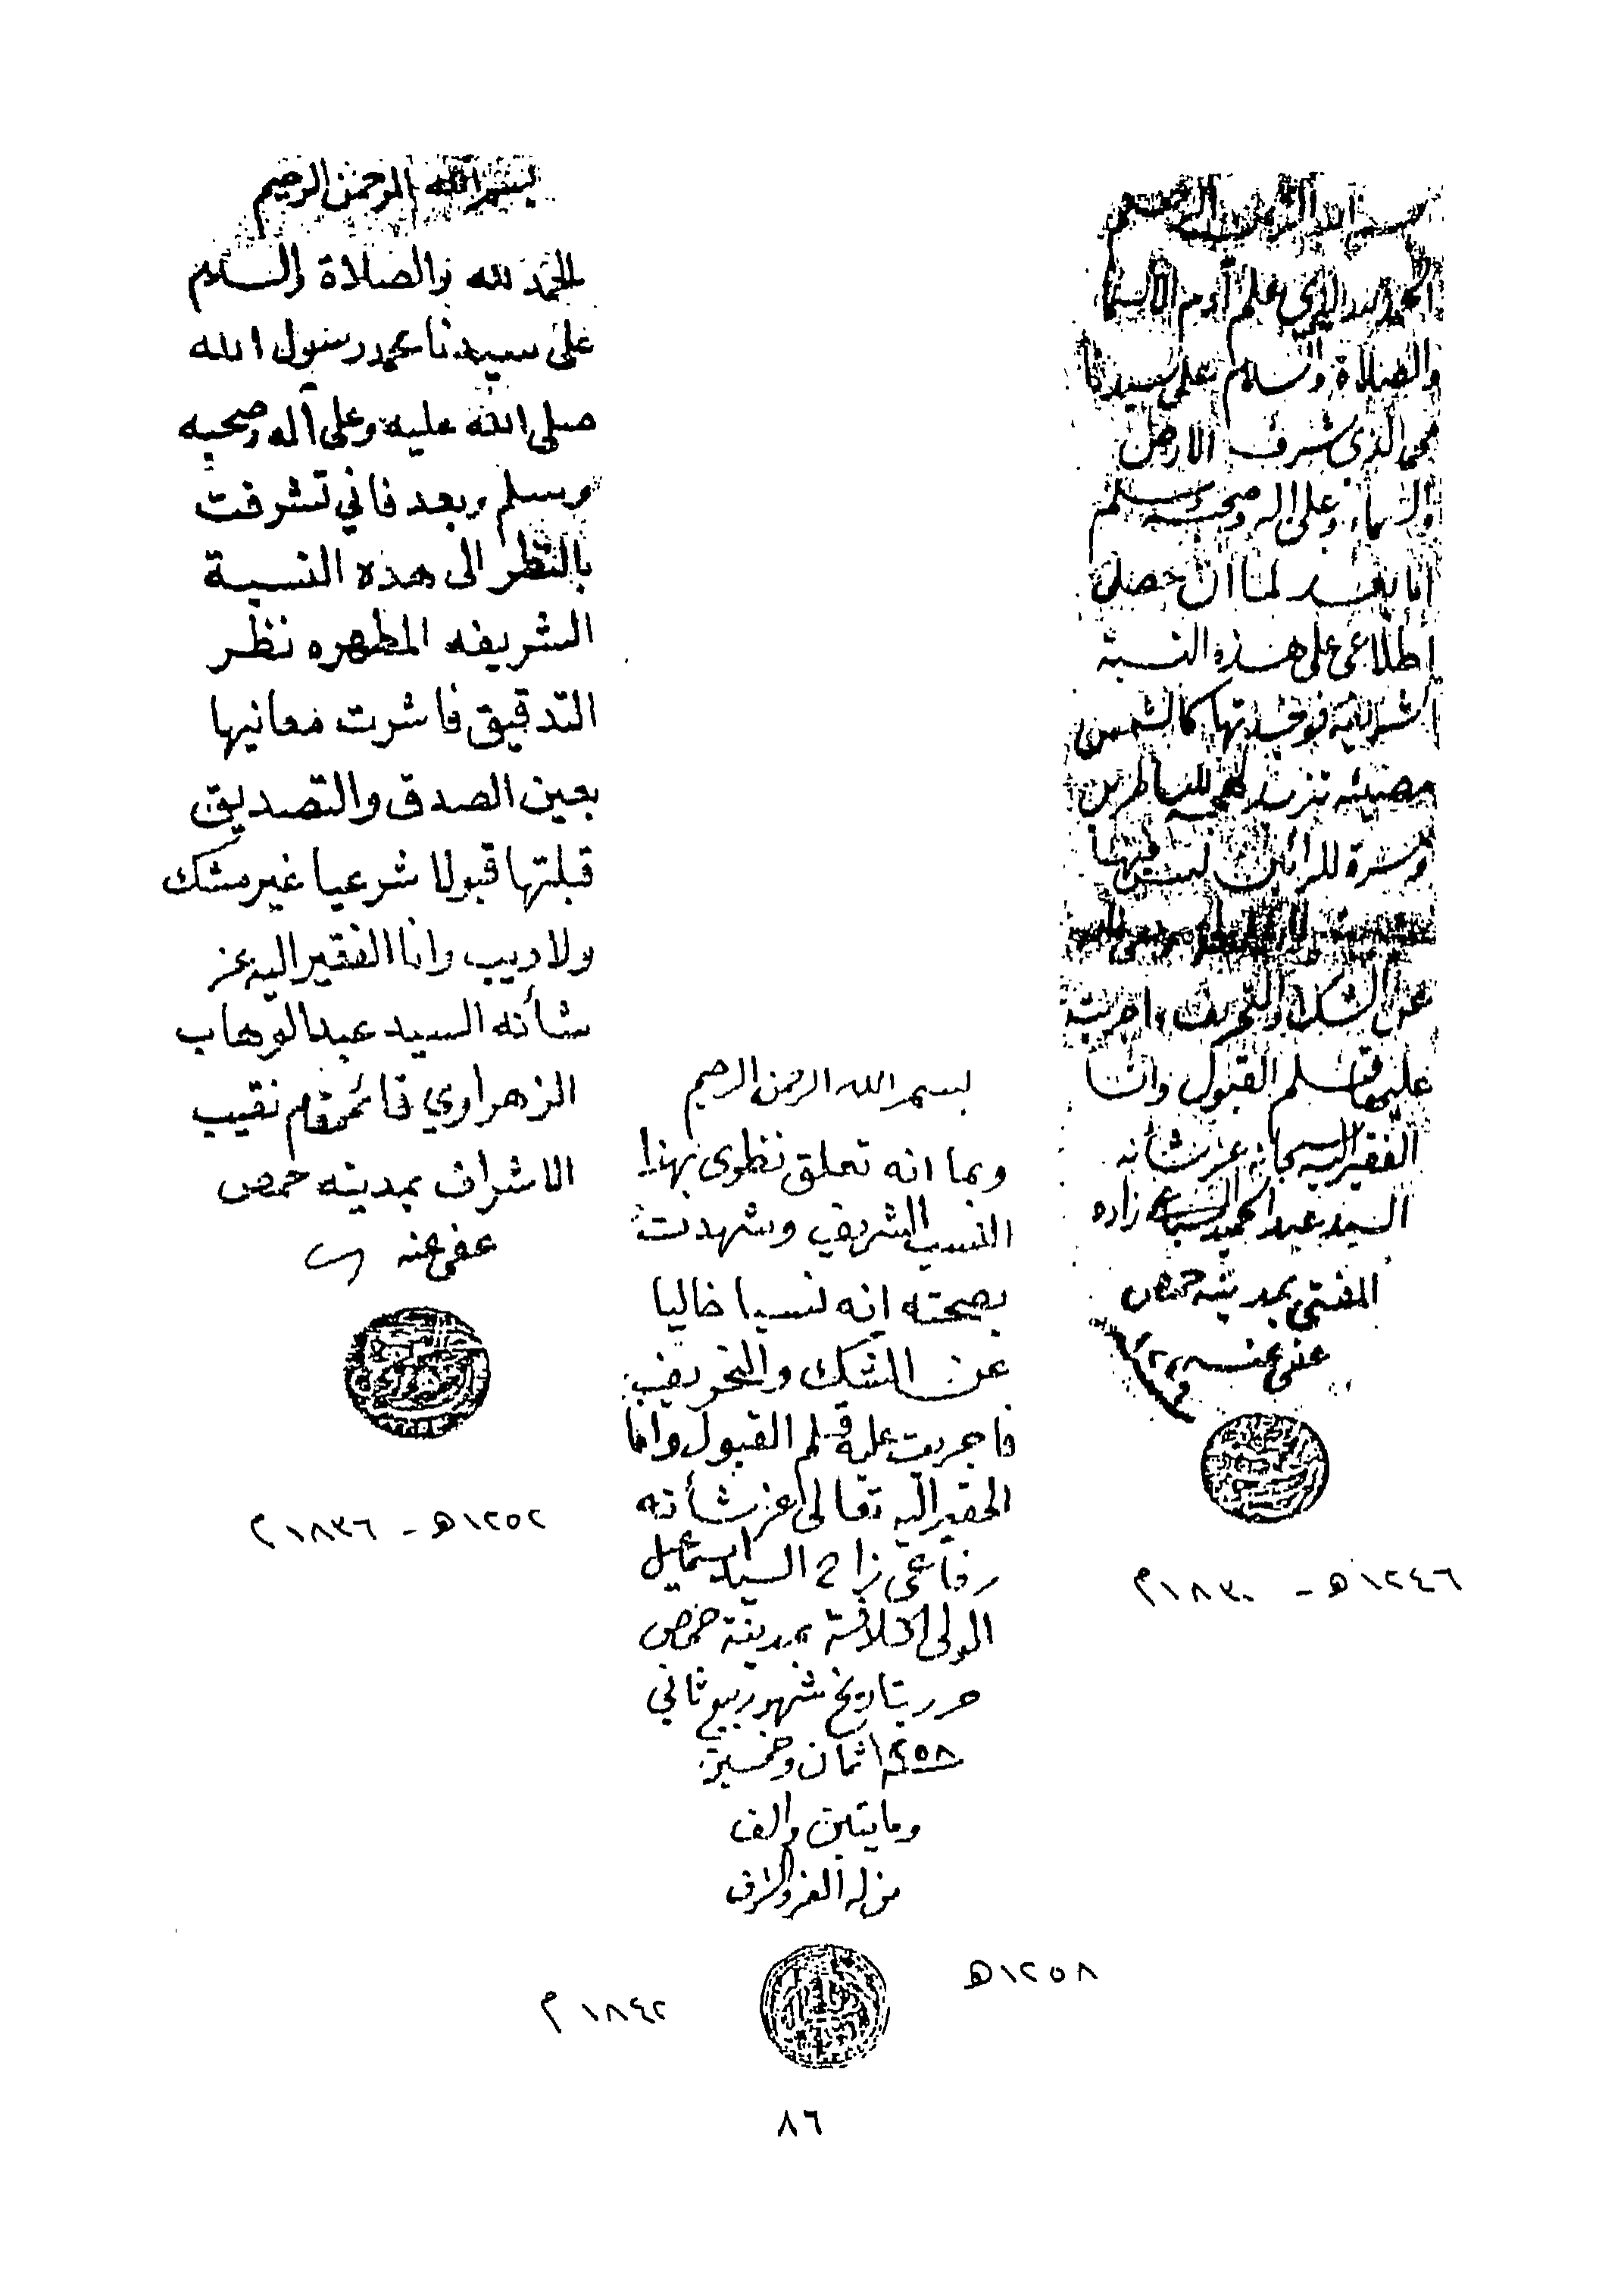 بسم الله الرحمن الرحيم
الحمد لله الذي علم آدم الاسما
والصلاة والسلام على سيدنا
محمد الذي شرف الارض
والسماء وعلى اله وصحبه وسلم
اما بعد لما ان حصل
اطلاعي على هذه النسبة
الشريفة فوجدتها كالشمس
مضيئة للناظرين
ومسرة للرائين ليس فيها
عن الشك والتحريف واجريت
عليها قلم القبول وانا
الفقير اليه سبحانه عز شأنه
السيد عبد الحميد السباعي زاده
المفتي بمدينة حمص
عفى عنه
١٢٤٦هـ - ١٨٣٠م
بسم الله الرحمن الرحيم
وبما انه تعلق نظري بهذا
النسب الشريف وشهدت
بصحته انه نسبا خاليا
عن الشك والتحريف
فاجريت عليه قلم القبول وانا
الحقير اليه تعالى عز شأنه
رفاعي زا السيد اسماعيل
المولى الخلافة بمدينة حمص
حرر بتاريخ شهر ربيع ثاني
١٢٥٨ ثمان وخمسين
ومايتين والف
من له العز والشرف
١٢٥٨هـ
١٨٤٢م
بسم الله الرحمن الرحيم
الحمد لله والصلاة والسلام
على سيدنا محمد رسول الله
صلى الله عليه وعلى آله وصحبه
وسلم وبعد فاني تشرفت
بالنظر الى هذه النسبة
الشريفه المطهره نظر
التدقيق فاشرت معانيها
بعين الصدق والتصديق
قبلتها قبولا شرعيا غير مشك
ولا ريب وانا الفقير اليه عز
شأنه السيد عبد الوهاب
الزهراوي قائممقام نقيب
الاشراف بمدينه حمص
عفى عنه
١٢٥٢هـ - ١٨٣٦م
٨٦